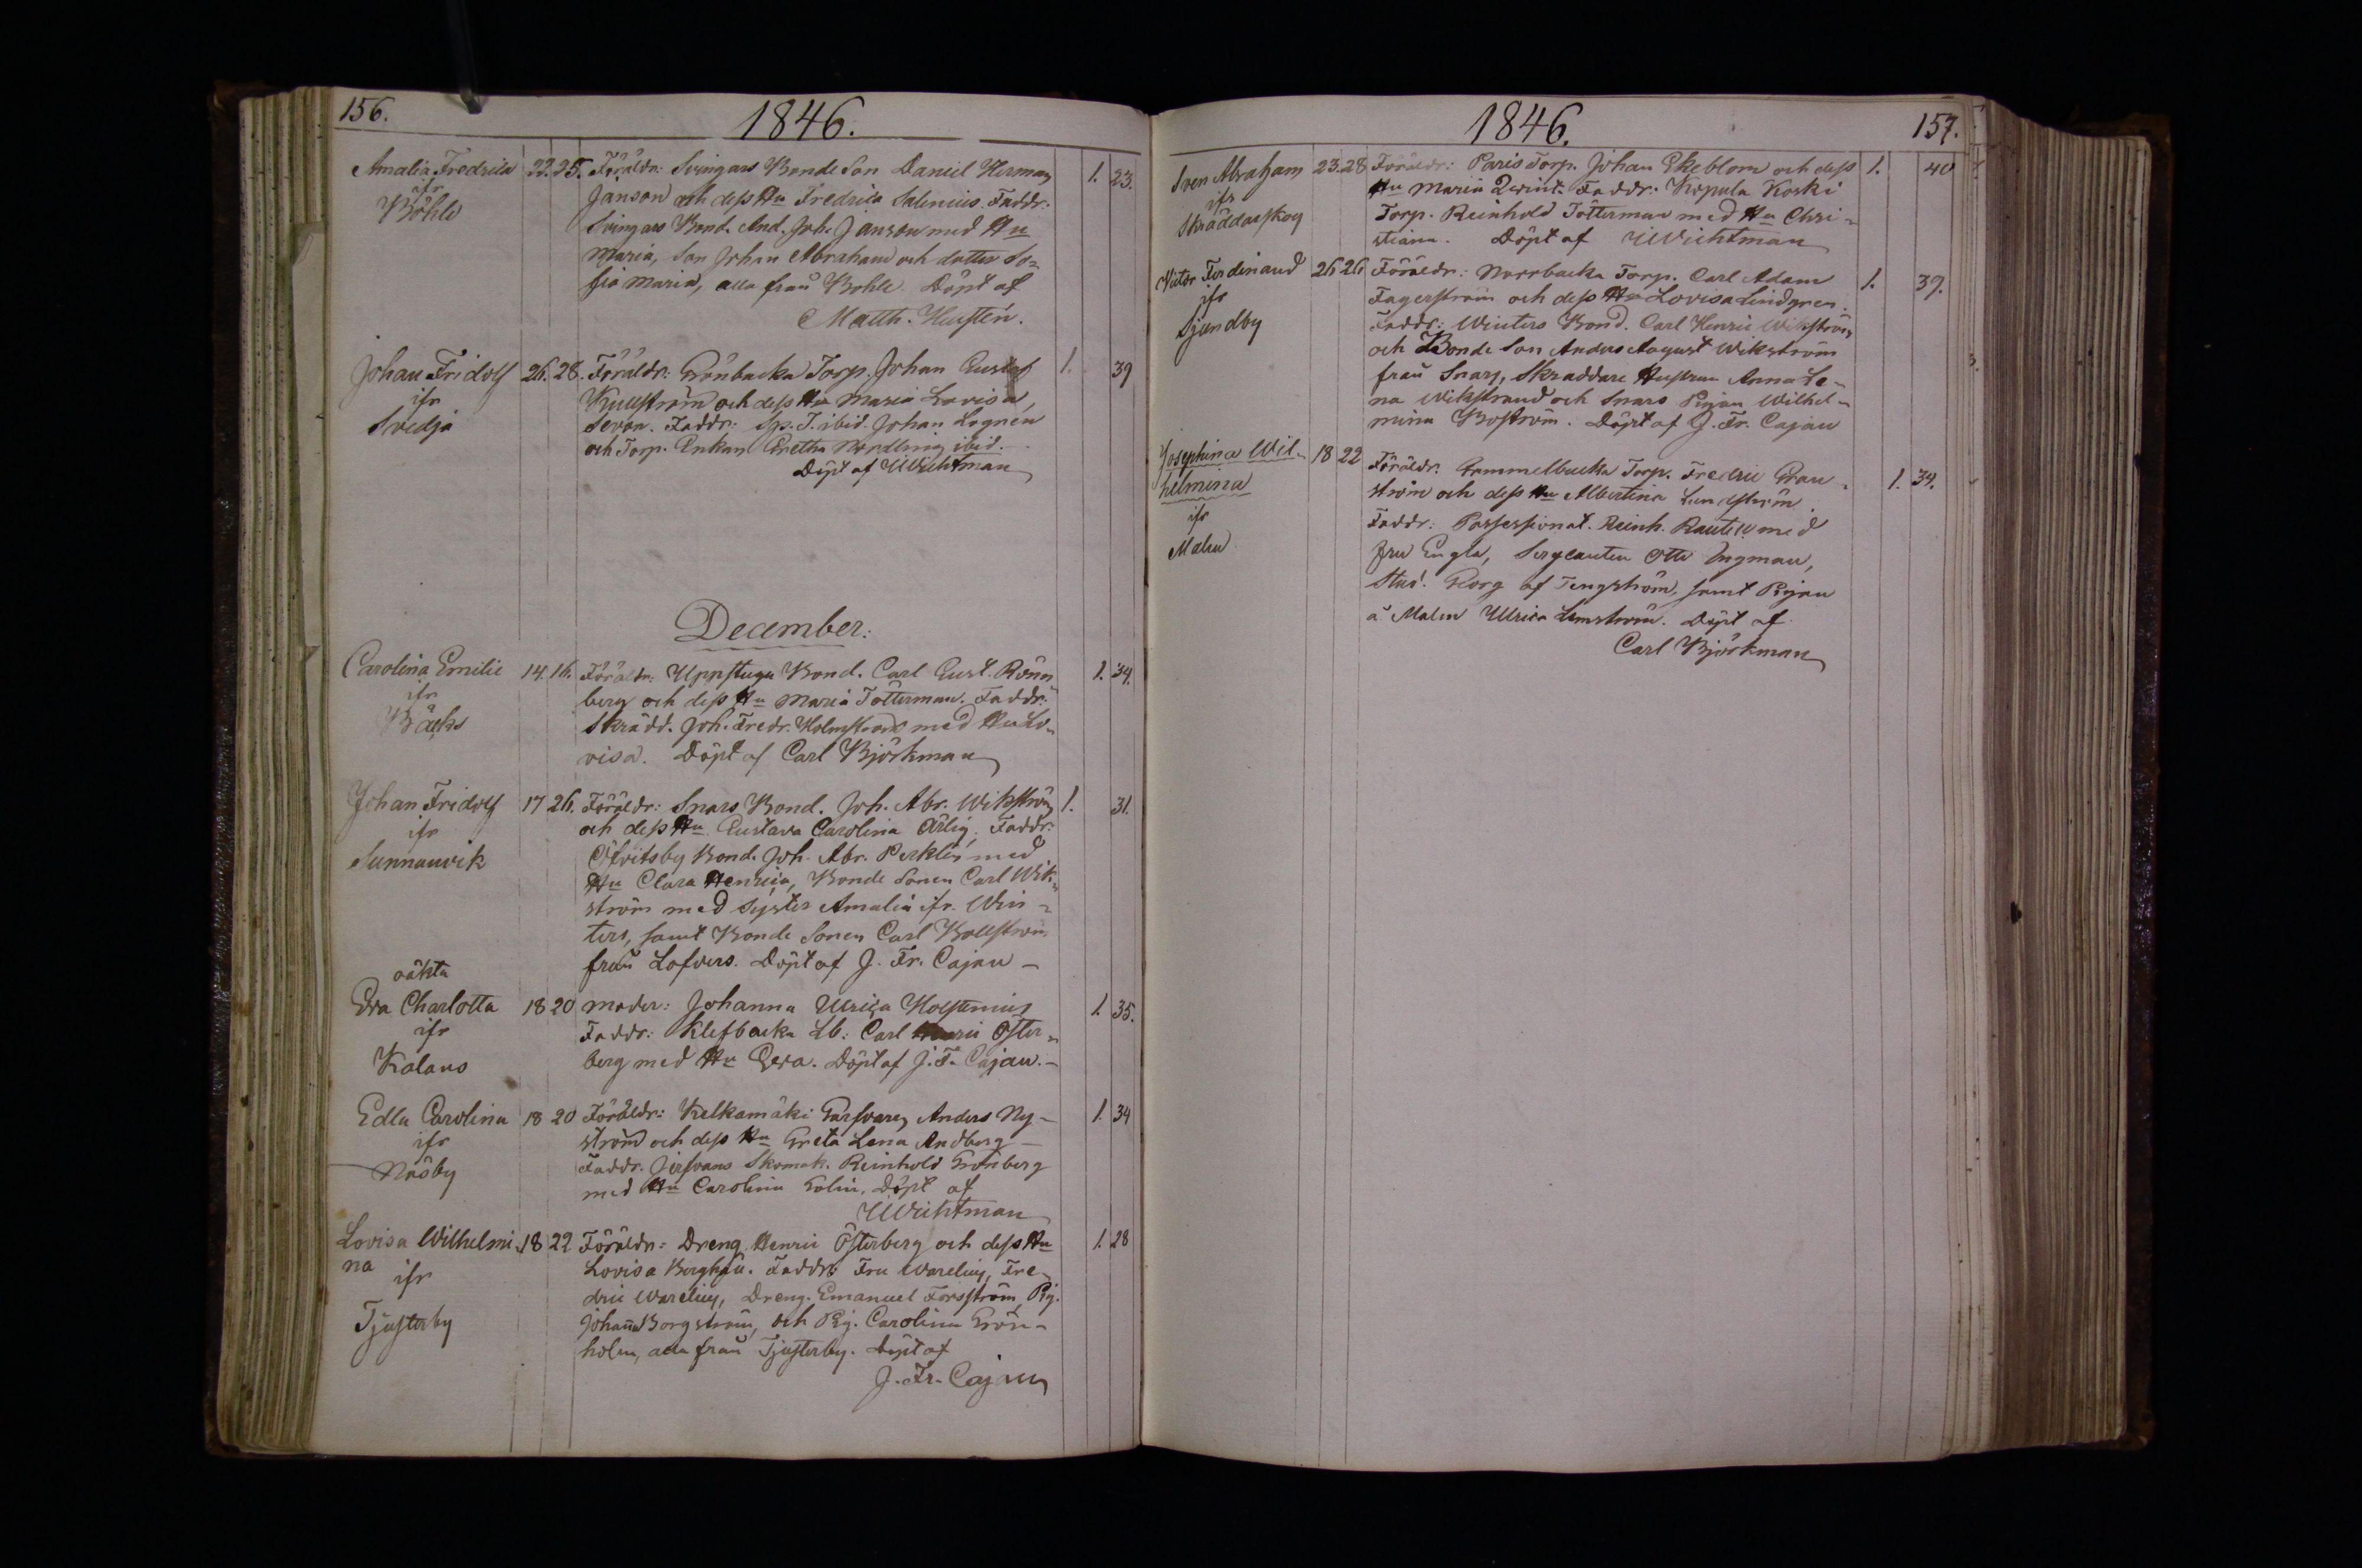 156.
1846.
Amalia Fredrica 22. 25. Föräldr: Svingars Bonde Son Daniel Herman 1. 23.
ifr Janson och dess Hu Fredrica Salenius. Faddr:
Böhle Svingars Bond. And. Joh. Janson med Hu
Maria, Son Johan Abraham och dotter So=
fia Maria, alla från Böhle. Döpt af
Matth.
Johan Fridolf 26. 28. Föräldr: Grönbacka Torp. Johan Gustaf 1. 39
ifr Kullström och dess Hu Maria Lovisa
Svedja Sevon. Faddr: Sp. T. ibid. Johan Lognen
och Torp. Enkan Gretha Nordling ibid.
Döpt af Wichtman
December:
Carolina Emilie 14. 16. Föräldr: Uppstuga Bond. Carl Gust. Rönn 1. 34.
ifr berg och dess Hu Maria Totterman. Faddr:
Bäcks Skrädd. Joh. Fredr. Holmstrom med Hu Lo-
visa. Döpt af Carl Björkman
Johan Fridolf 17 26. Föräldr: Snars Bond. Joh. Abr. Wikström 1. 31.
ifr och dess Hu Gustava Carolina Ärlig. Faddr:
Sunnanvik Ölvitsby Bond. Joh. Abr. Perklen med
Hu Clara Henrica, Bonde Sonen Carl Wik-
ström med Syster Amalia ifr. Win-
ters, samt Bonde Sonen Carl Bollström
från Lofvers. Döpt af J. Fr. Cajan -
oäkta
Eva Charlotta 18 20 Moder: Johanna Ulrica Holstenius 1. 35.
ifr Faddr: Klefbacka Lb: Carl Henric Öster-
Kalans berg med Hu Eva. Döpt af J. F. Cajan. -
Edla Carolina 18 20 Föräldr: Kelkamäki Garfvaren Anders Ny- 1. 34
ifr ström och dess Hu Greta Lena Andberg -
Näsby Faddr. Skomak. Reinhold Grönberg
med Hu Carolina Golin. Döpt af
Wichtman
Lovisa Wilhelmi- 18 22 Föräldr: Dreng Henric Österberg och dess Hu 1. 28
na ifr Lovisa Faddr: Fru Warelius, Fre-
dric Warelius, Dreng. Emanuel Forsström, Pig.
Tjusterby Johanna Borgström, och Pig. Carolina Grön-
holm, alla från Tjusterby. Döpt af
J. Fr. Cajan
1846.
157.
Sven Abraham 23. 28 Föräldr: Paris Torp. Johan Ekeblom och dess 1. 40
ifr Hu Maria Qwist. Faddr: Kopula Koski
Skräddarskog Torp. Reinhold Totterman med Hu Chri-
stiana. Döpt af Wichtman
Victor Ferdinand 26 26 Föräldr: Norrbacka Torp. Carl Adam 1. 39.
ifr Fagerström och dess Hu Lovisa Lindgren.
Sjundby Faddr: Winters Bond. Carl Henric Wikström
och Bonde Son Anders August Wikström
från Snars, Skraddare Hustrun Anna Le-
na Wikstrand och Snars Pigan Wilhel-
mina Boström. Döpt af J. Fr. Cajan
Josephina Wil- 18 22 Föräldr: Gammelbacka Torp. Fredric Gran- 1. 34.
helmina ström och dess Hu Albertina Lundström.
ifr Faddr: Possessionat. Reinh. Rautell med
Malm Fru Engla, Sergeanten Otto Ingman,
Stud. Georg af Tengström, samt Pigan
å Malm Ulrica Limström. Döpt af
Carl Björkman